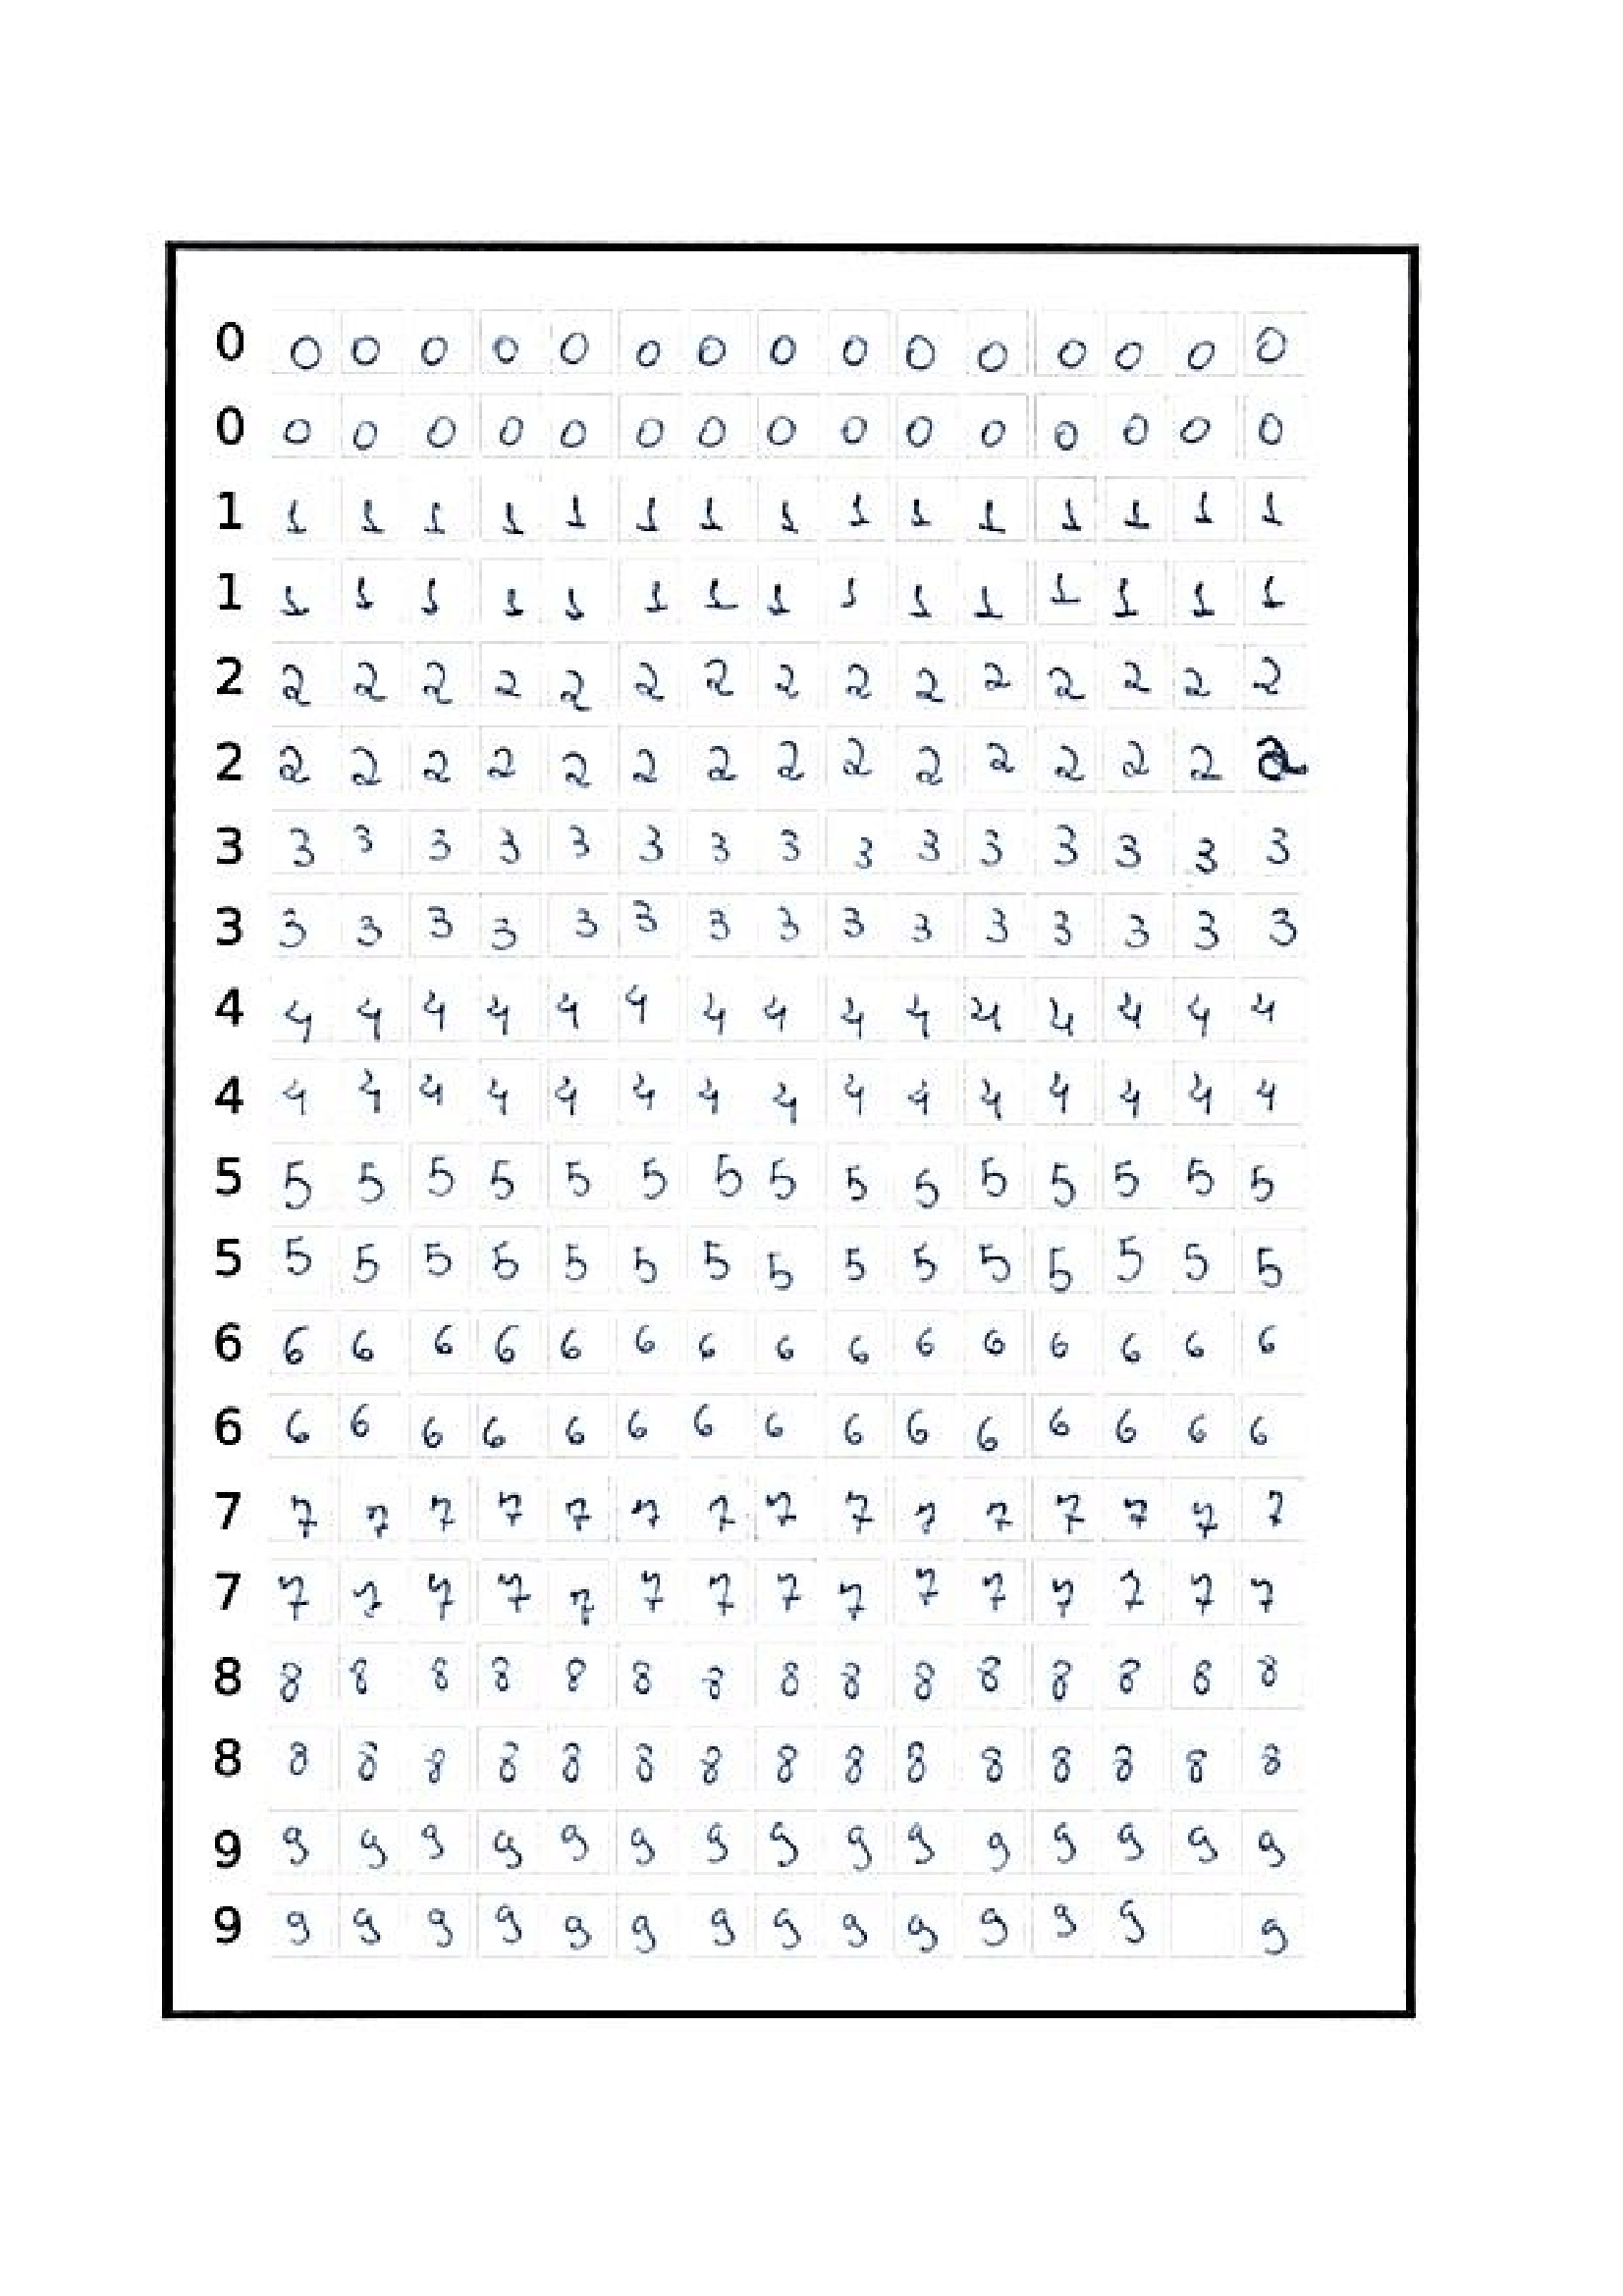 0 0 0 0 0 0 0 0 0 0 0 0 0 0 0 0
0 0 0 0 0 0 0 0 0 0 0 0 0 0 0 0
1 1 1 1 1 1 1 1 1 1 1 1 1 1 1 1
1 1 1 1 1 1 1 1 1 1 1 1 1 1 1 1
2 2 2 2 2 2 2 2 2 2 2 2 2 2 2 2
2 2 2 2 2 2 2 2 2 2 2 2 2 2 2 2
3 3 3 3 3 3 3 3 3 3 3 3 3 3 3 3
3 3 3 3 3 3 3 3 3 3 3 3 3 3 3 3
4 4 4 4 4 4 4 4 4 4 4 4 4 4 4 4
4 4 4 4 4 4 4 4 4 4 4 4 4 4 4 4
5 5 5 5 5 5 5 5 5 5 5 5 5 5 5 5
5 5 5 5 5 5 5 5 5 5 5 5 5 5 5 5
6 6 6 6 6 6 6 6 6 6 6 6 6 6 6 6
6 6 6 6 6 6 6 6 6 6 6 6 6 6 6 6
7 7 7 7 7 7 7 7 7 7 7 7 7 7 7 7
7 7 7 7 7 7 7 7 7 7 7 7 7 7 7 7
8 8 8 8 8 8 8 8 8 8 8 8 8 8 8 8
8 8 8 8 8 8 8 8 8 8 8 8 8 8 8 8
9 9 9 9 9 9 9 9 9 9 9 9 9 9 9 9
9 9 9 9 9 9 9 9 9 9 9 9 9 9 9